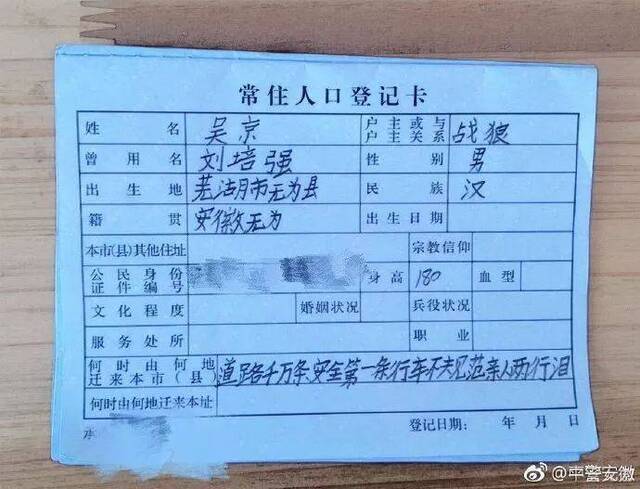 常住人口登记卡
姓名 吴京 户主或与
户主关系 战狼
曾用名 刘培强 性别 男
出生地 芜湖市无为县 民族 汉
籍贯 安徽无为 出生日期
本市(县)其他住址 宗教信仰
公民身份
证件编号 身高 180 血型
文化程度 婚姻状况 兵役状况
服务处所 职业
何时由何地
迁来本市(县) 道路千万条,安全第一条行车不规范亲人两行泪
何时由何地迁来本址
登记日期: 年 月 日
警安徽